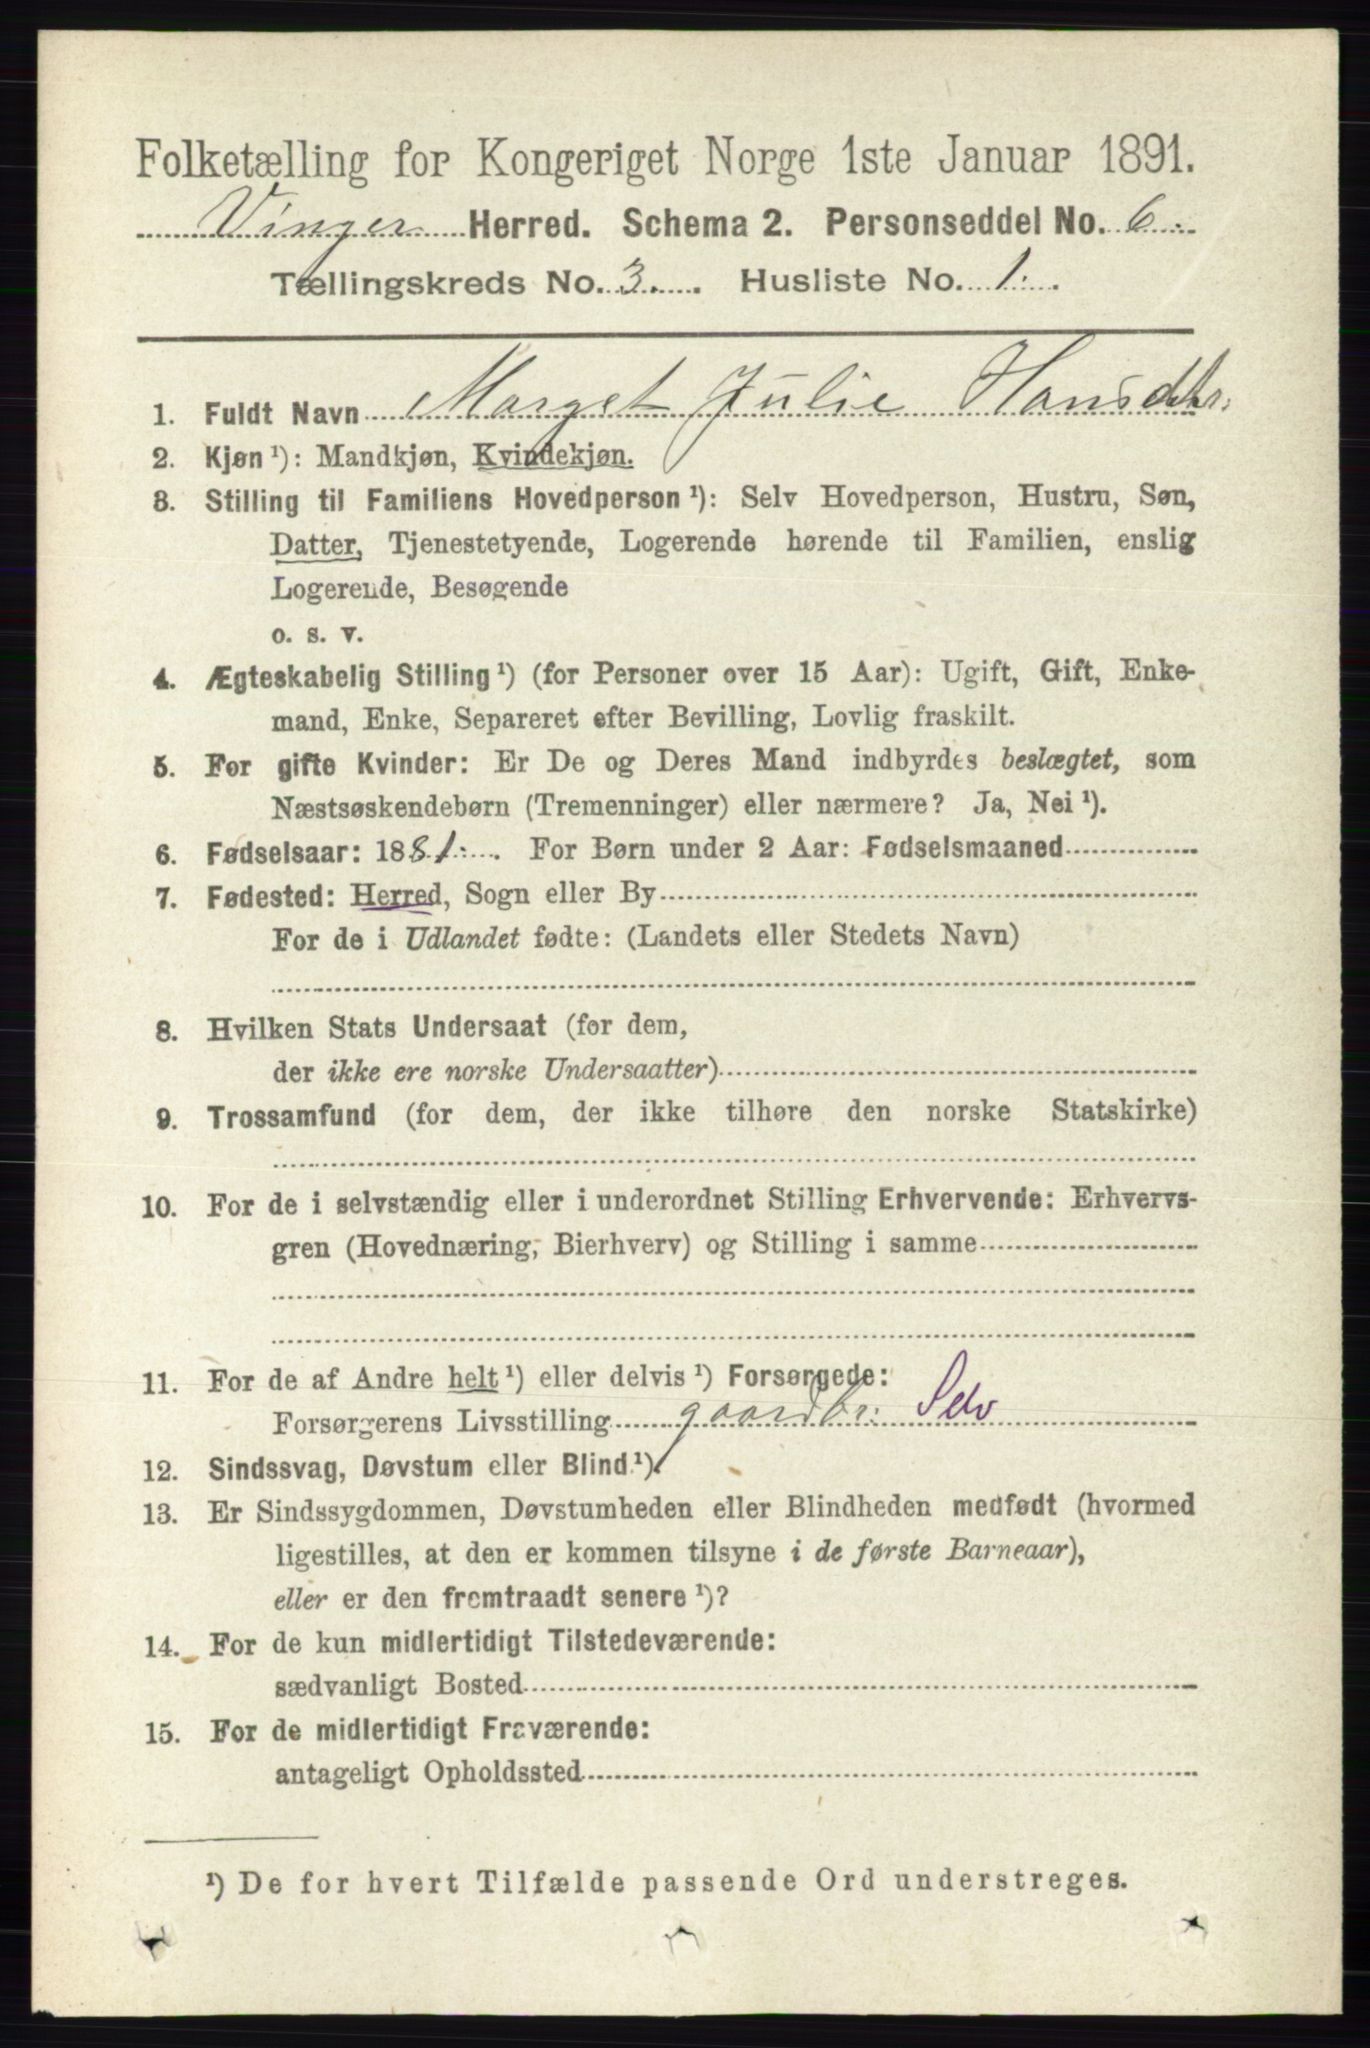 Folketælling for Kongeriget Norge 1ste Januar 1891.
Vinger Herred. Schema 2. Personseddel No. 6.
Tællingskreds No. 3. Husliste No. 1.
1. Fuldt Navn Marget Julie Hansdtr.
2. Kjøn ¹): Mandkjøn, Kvindekjøn.
3. Stilling til Familiens Hovedperson ¹): Selv Hovedperson, Hustru, Søn,
Datter, Tjenestetyende, Logerende hørende til Familien, enslig
Logerende, Besøgende
o. s. v.
4. Ægteskabelig Stilling ¹) (for Personer over 15 Aar): Ugift, Gift, Enke-
mand, Enke, Separeret efter Bevilling, Lovlig fraskilt.
5. For gifte Kvinder: Er De og Deres Mand indbyrdes beslægtet, som
Næstsøskendebørn (Tremenninger) eller nærmere? Ja, Nei ¹).
6. Fødselsaar: 1881. For Børn under 2 Aar: Fødselsmaaned
7. Fødested: Herred, Sogn eller By
For de i Udlandet fødte: (Landets eller Stedets Navn)
8. Hvilken Stats Undersaat (for dem,
der ikke ere norske Undersaatter)
9. Trossamfund (for dem, der ikke tilhøre den norske Statskirke)
10. For de i selvstændig eller i underordnet Stilling Erhvervende: Erhvervs-
gren (Hovednæring, Bierhverv) og Stilling i samme
11. For de af Andre helt ¹) eller delvis ¹) Forsørgede:
Forsørgerens Livsstilling gaardbr: Selv
12. Sindssvag, Døvstum eller Blind ¹).
13. Er Sindssygdommen, Døvstumheden eller Blindheden medfødt (hvormed
ligestilles, at den er kommen tilsyne i de første Barneaar),
eller er den fremtraadt senere ¹)?
14. For de kun midlertidigt Tilstedeværende:
sædvanligt Bosted
15. For de midlertidigt Fraværende:
antageligt Opholdssted
¹) De for hvert Tilfælde passende Ord understreges.